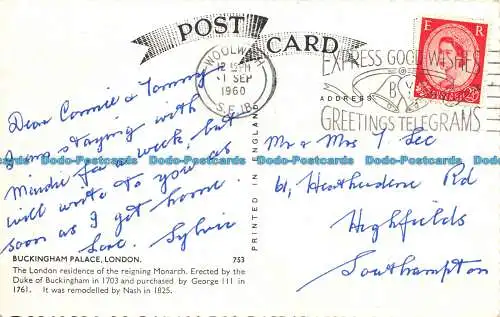 POST CARD
WOOLWICH
12 15 PM
-1 SEP
1960
S.E.18
EXPRESS GOOD WISHES
BY
GREETINGS TELEGRAMS
E R
ADDRESS
Dear Connie & Tommy
I am staying with
Mindie for a week, but
will write to you as
soon as I get home.
Love. Sylvie
Mr & Mrs T Lee
61, Heatherdene Rd
Highfields
Southampton
PRINTED IN ENGLAND
BUCKINGHAM PALACE, LONDON. 753
The London residence of the reigning Monarch. Erected by the
Duke of Buckingham in 1703 and purchased by George III in
1761. It was remodelled by Nash in 1825.
Dodo-Postcards Dodo-Postcards Dodo-Postcards Dodo-Postcards